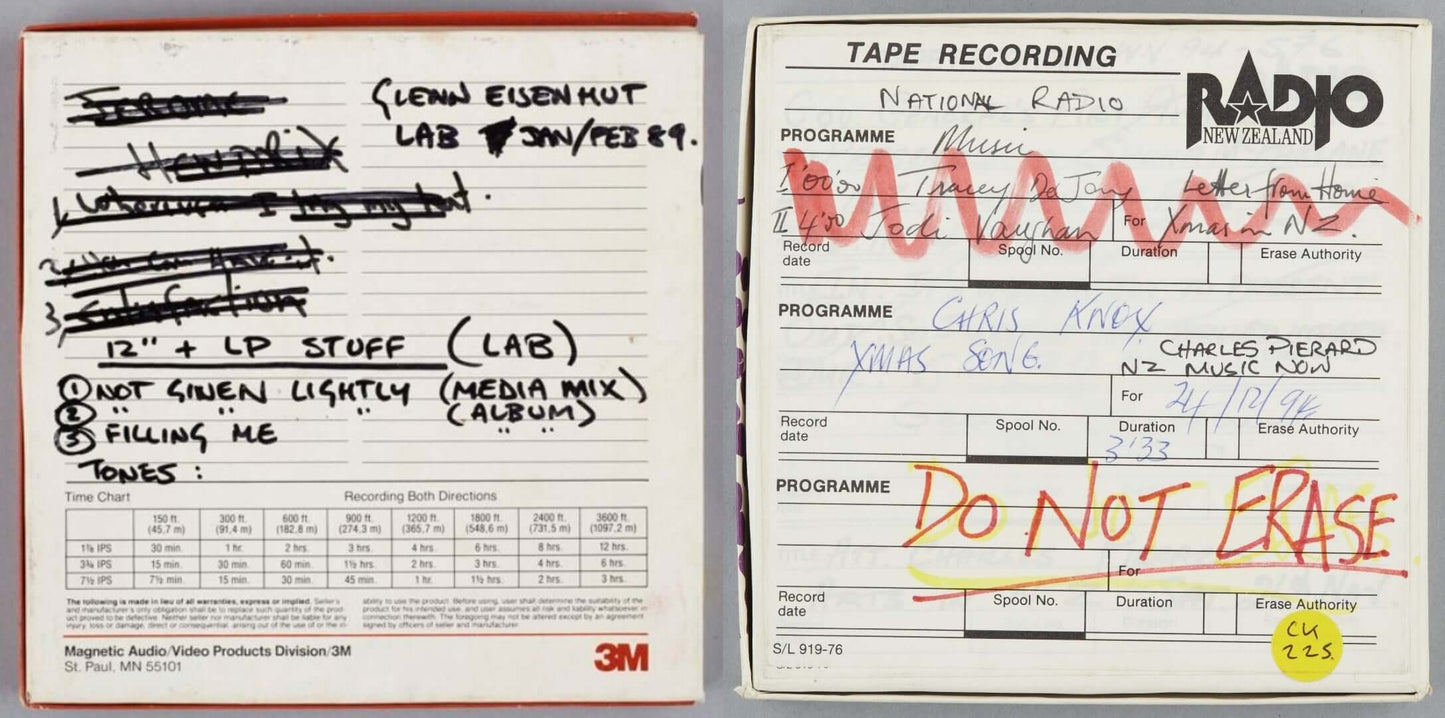 JEROME
HENDRIX
GLENN EISENHUT
LAB JAN/FEB 89.
1,
2,
3, Satisfaction
12" + LP STUFF (LAB)
① NOT GIVEN LIGHTLY (MEDIA MIX)
② " " " (ALBUM)
③ FILLING ME " "
TONES :
Time Chart Recording Both Directions
150 ft. (45,7 m) 300 ft. (91,4 m) 600 ft. (182,8 m) 900 ft. (274,3 m) 1200 ft. (365,7 m) 1800 ft. (548,6 m) 2400 ft. (731,5 m) 3600 ft. (1097,2 m)
1⅞ IPS 30 min. 1 hr. 2 hrs. 3 hrs. 4 hrs. 6 hrs. 8 hrs. 12 hrs.
3¾ IPS 15 min. 30 min. 60 min. 1½ hrs. 2 hrs. 3 hrs. 4 hrs. 6 hrs.
7½ IPS 7½ min. 15 min. 30 min. 45 min. 1 hr. 1½ hrs. 2 hrs. 3 hrs.
The following is made in lieu of all warranties, express or implied. Seller's
and manufacturer's only obligation shall be to replace such quantity of the prod-
uct proved to be defective. Neither seller nor manufacturer shall be liable for any
injury, loss or damage, direct or consequential, arising out of the use of or the in-
ability to use the product. Before using, user shall determine the suitability of the
product for his intended use, and user assumes all risk and liability whatsoever in
connection therewith. The foregoing may not be altered except by an agreement
signed by officers of seller and manufacturer.
Magnetic Audio/Video Products Division/3M
St. Paul, MN 55101
3M
TAPE RECORDING
RADIO
NEW ZEALAND
NATIONAL RADIO
PROGRAMME Music
I '00'00 Tracey De Jong Letter from Home
II 4'00 Jodi Vaughan For Xmas in NZ.
Record date Spool No. Duration Erase Authority
PROGRAMME CHRIS KNOX
XMAS SONG. CHARLES PIERARD
NZ MUSIC NOW
For 24/12/94
Record date Spool No. Duration Erase Authority
3'33
PROGRAMME DO NOT ERASE
For
Record date Spool No. Duration Erase Authority
S/L 919-76
CK
225.